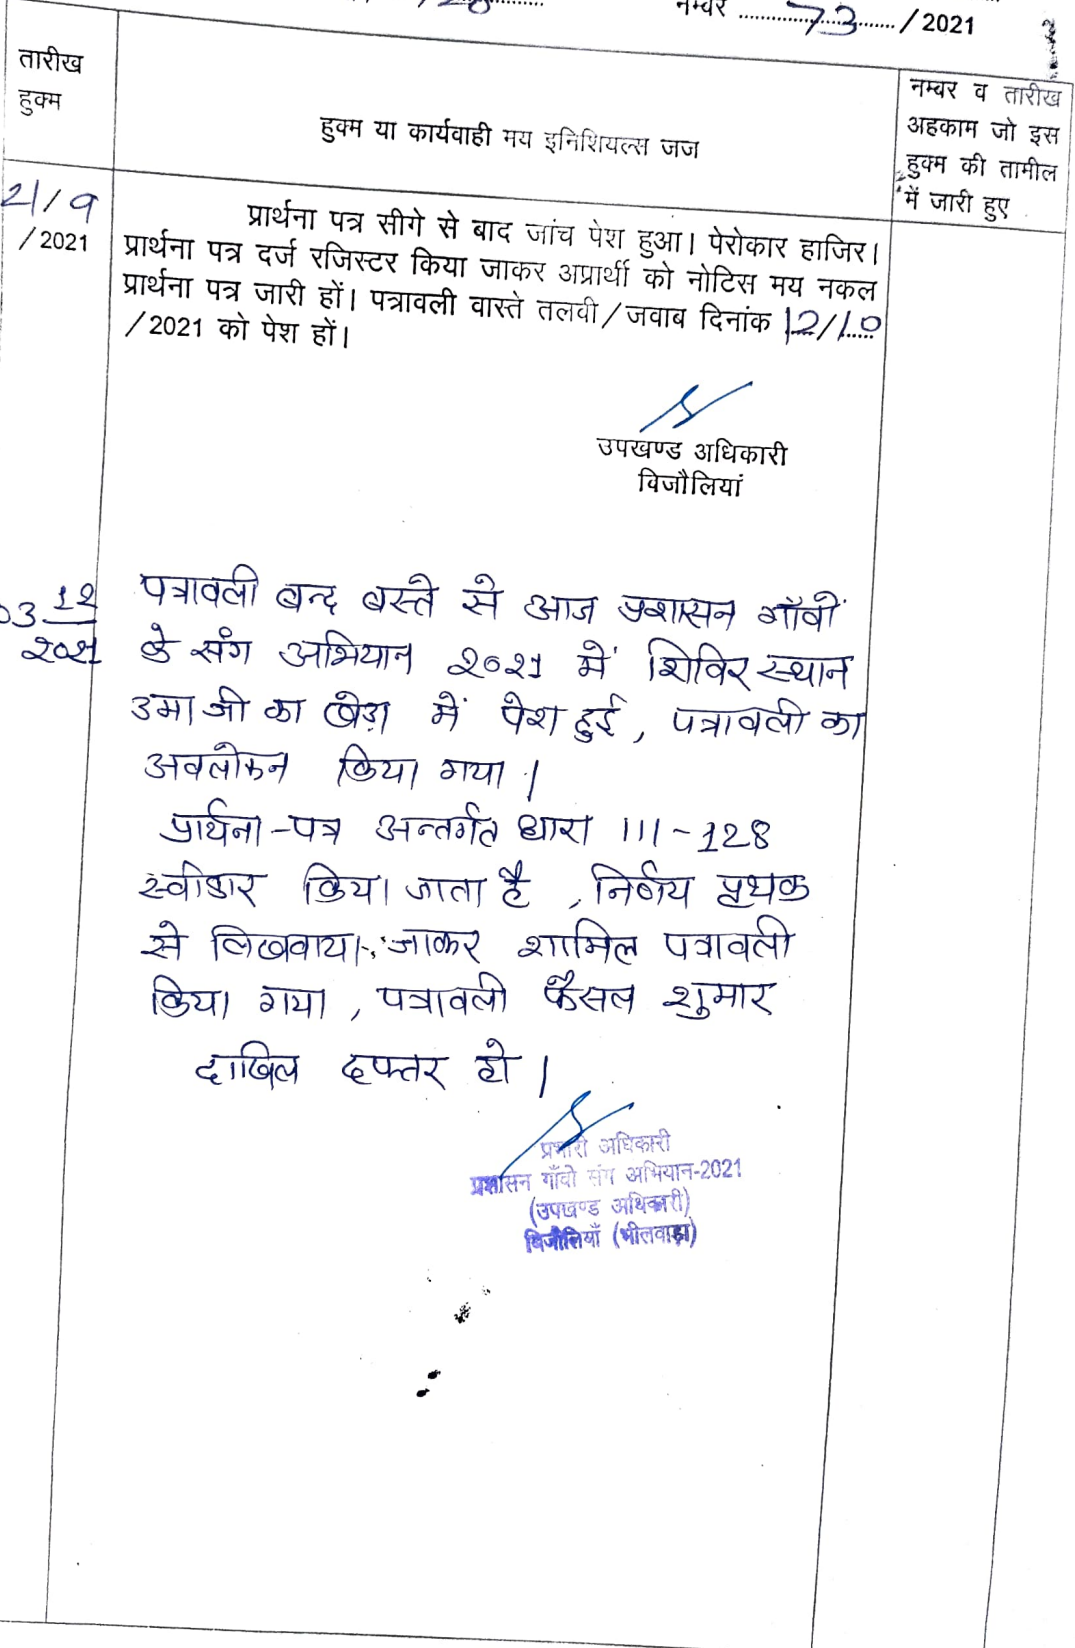 नम्बर ..........73......./2021
तारीख
हुक्म
हुक्म या कार्यवाही मय इनिशियल्स जज
नम्बर व तारीख
अहकाम जो इस
हुक्म की तामील
में जारी हुए
21/9
/2021
प्रार्थना पत्र सीगे से बाद जांच पेश हुआ। पेरोकार हाजिर।
प्रार्थना पत्र दर्ज रजिस्टर किया जाकर अप्रार्थी को नोटिस मय नकल
प्रार्थना पत्र जारी हों। पत्रावली वास्ते तलवी/जवाब दिनांक 12/10
/2021 को पेश हों।
उपखण्ड अधिकारी
विजौलियां
03 12
२०२१
पत्रावली बन्द बस्ते से आज प्रशासन गाँवों
के संग अभियान २०२१ में शिविर स्थान
उमा जी का खेड़ा में पेश हुई, पत्रावली का
अवलोकन किया गया।
प्रार्थना-पत्र अन्तर्गत धारा 111-128
स्वीकार किया जाता है, निर्णय पृथक
से लिखवाया जाकर शामिल पत्रावली
किया गया, पत्रावली फैसल शुमार
दाखिल दफ्तर हो।
प्रभारी अधिकारी
प्रशासन गाँवो संग अभियान-2021
(उपखण्ड अधिकारी)
विजौलियाँ (भीलवाड़ा)